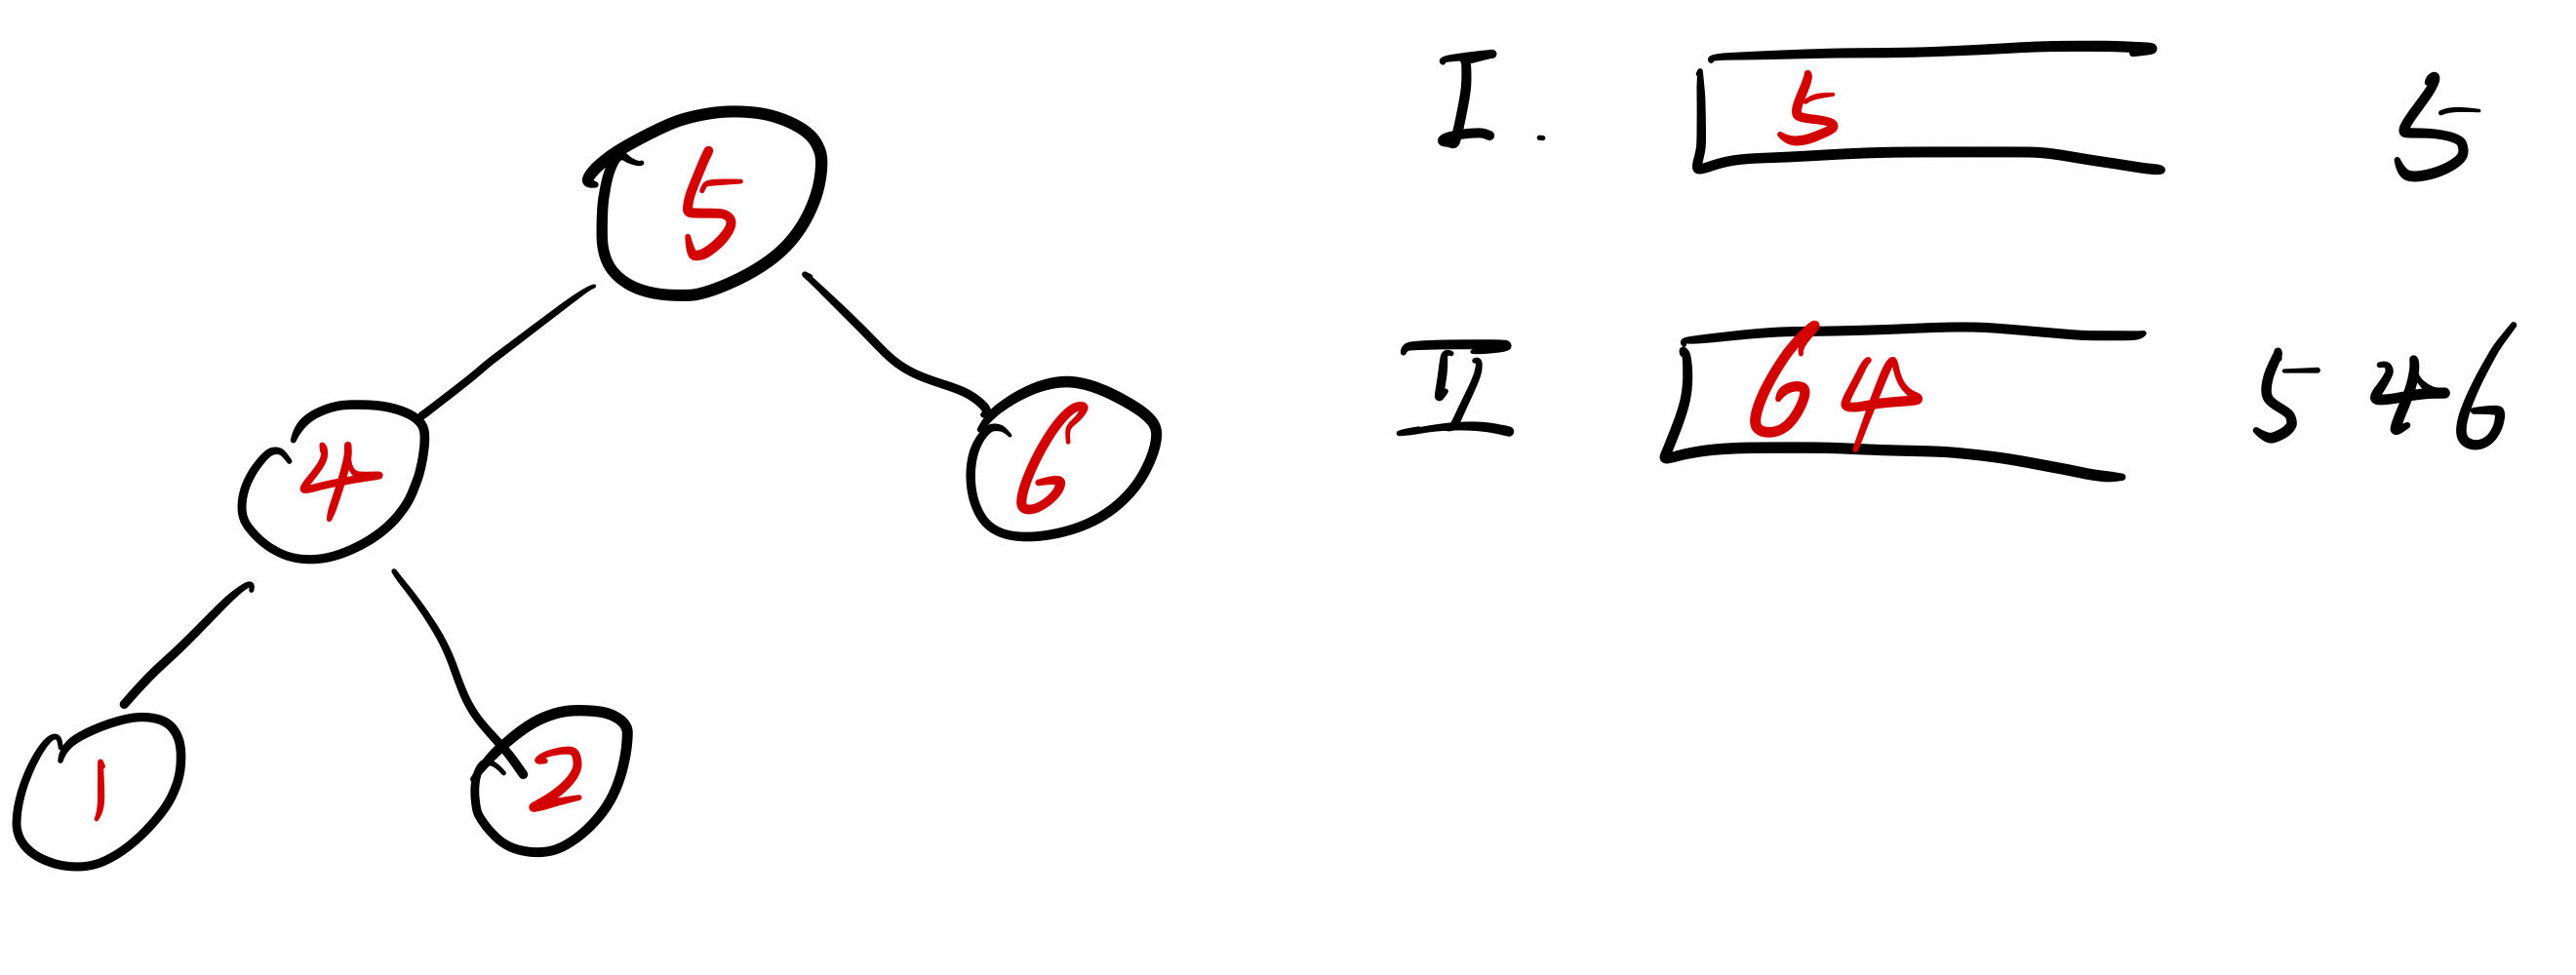 5
4 6
1 2
I. 5 5
II 64 546